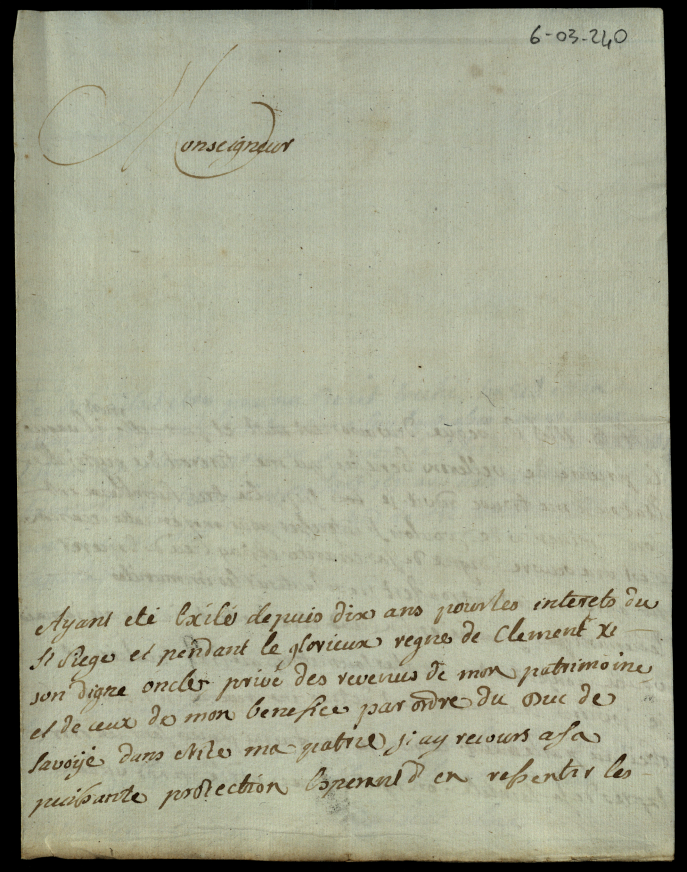 6-03-240
Monseigneur
Ayant eté Exilé depuis dix ans pour les interets du
St Siege et pendant le glorieux regne de Clement XI
son digne oncle privé des revenus de mon patrimoine
et de ceux de mon benefice par ordre du Duc de
Savoÿe dans ma patrie j'ay recours a sa
puissante protection Esperant d'en ressentir les